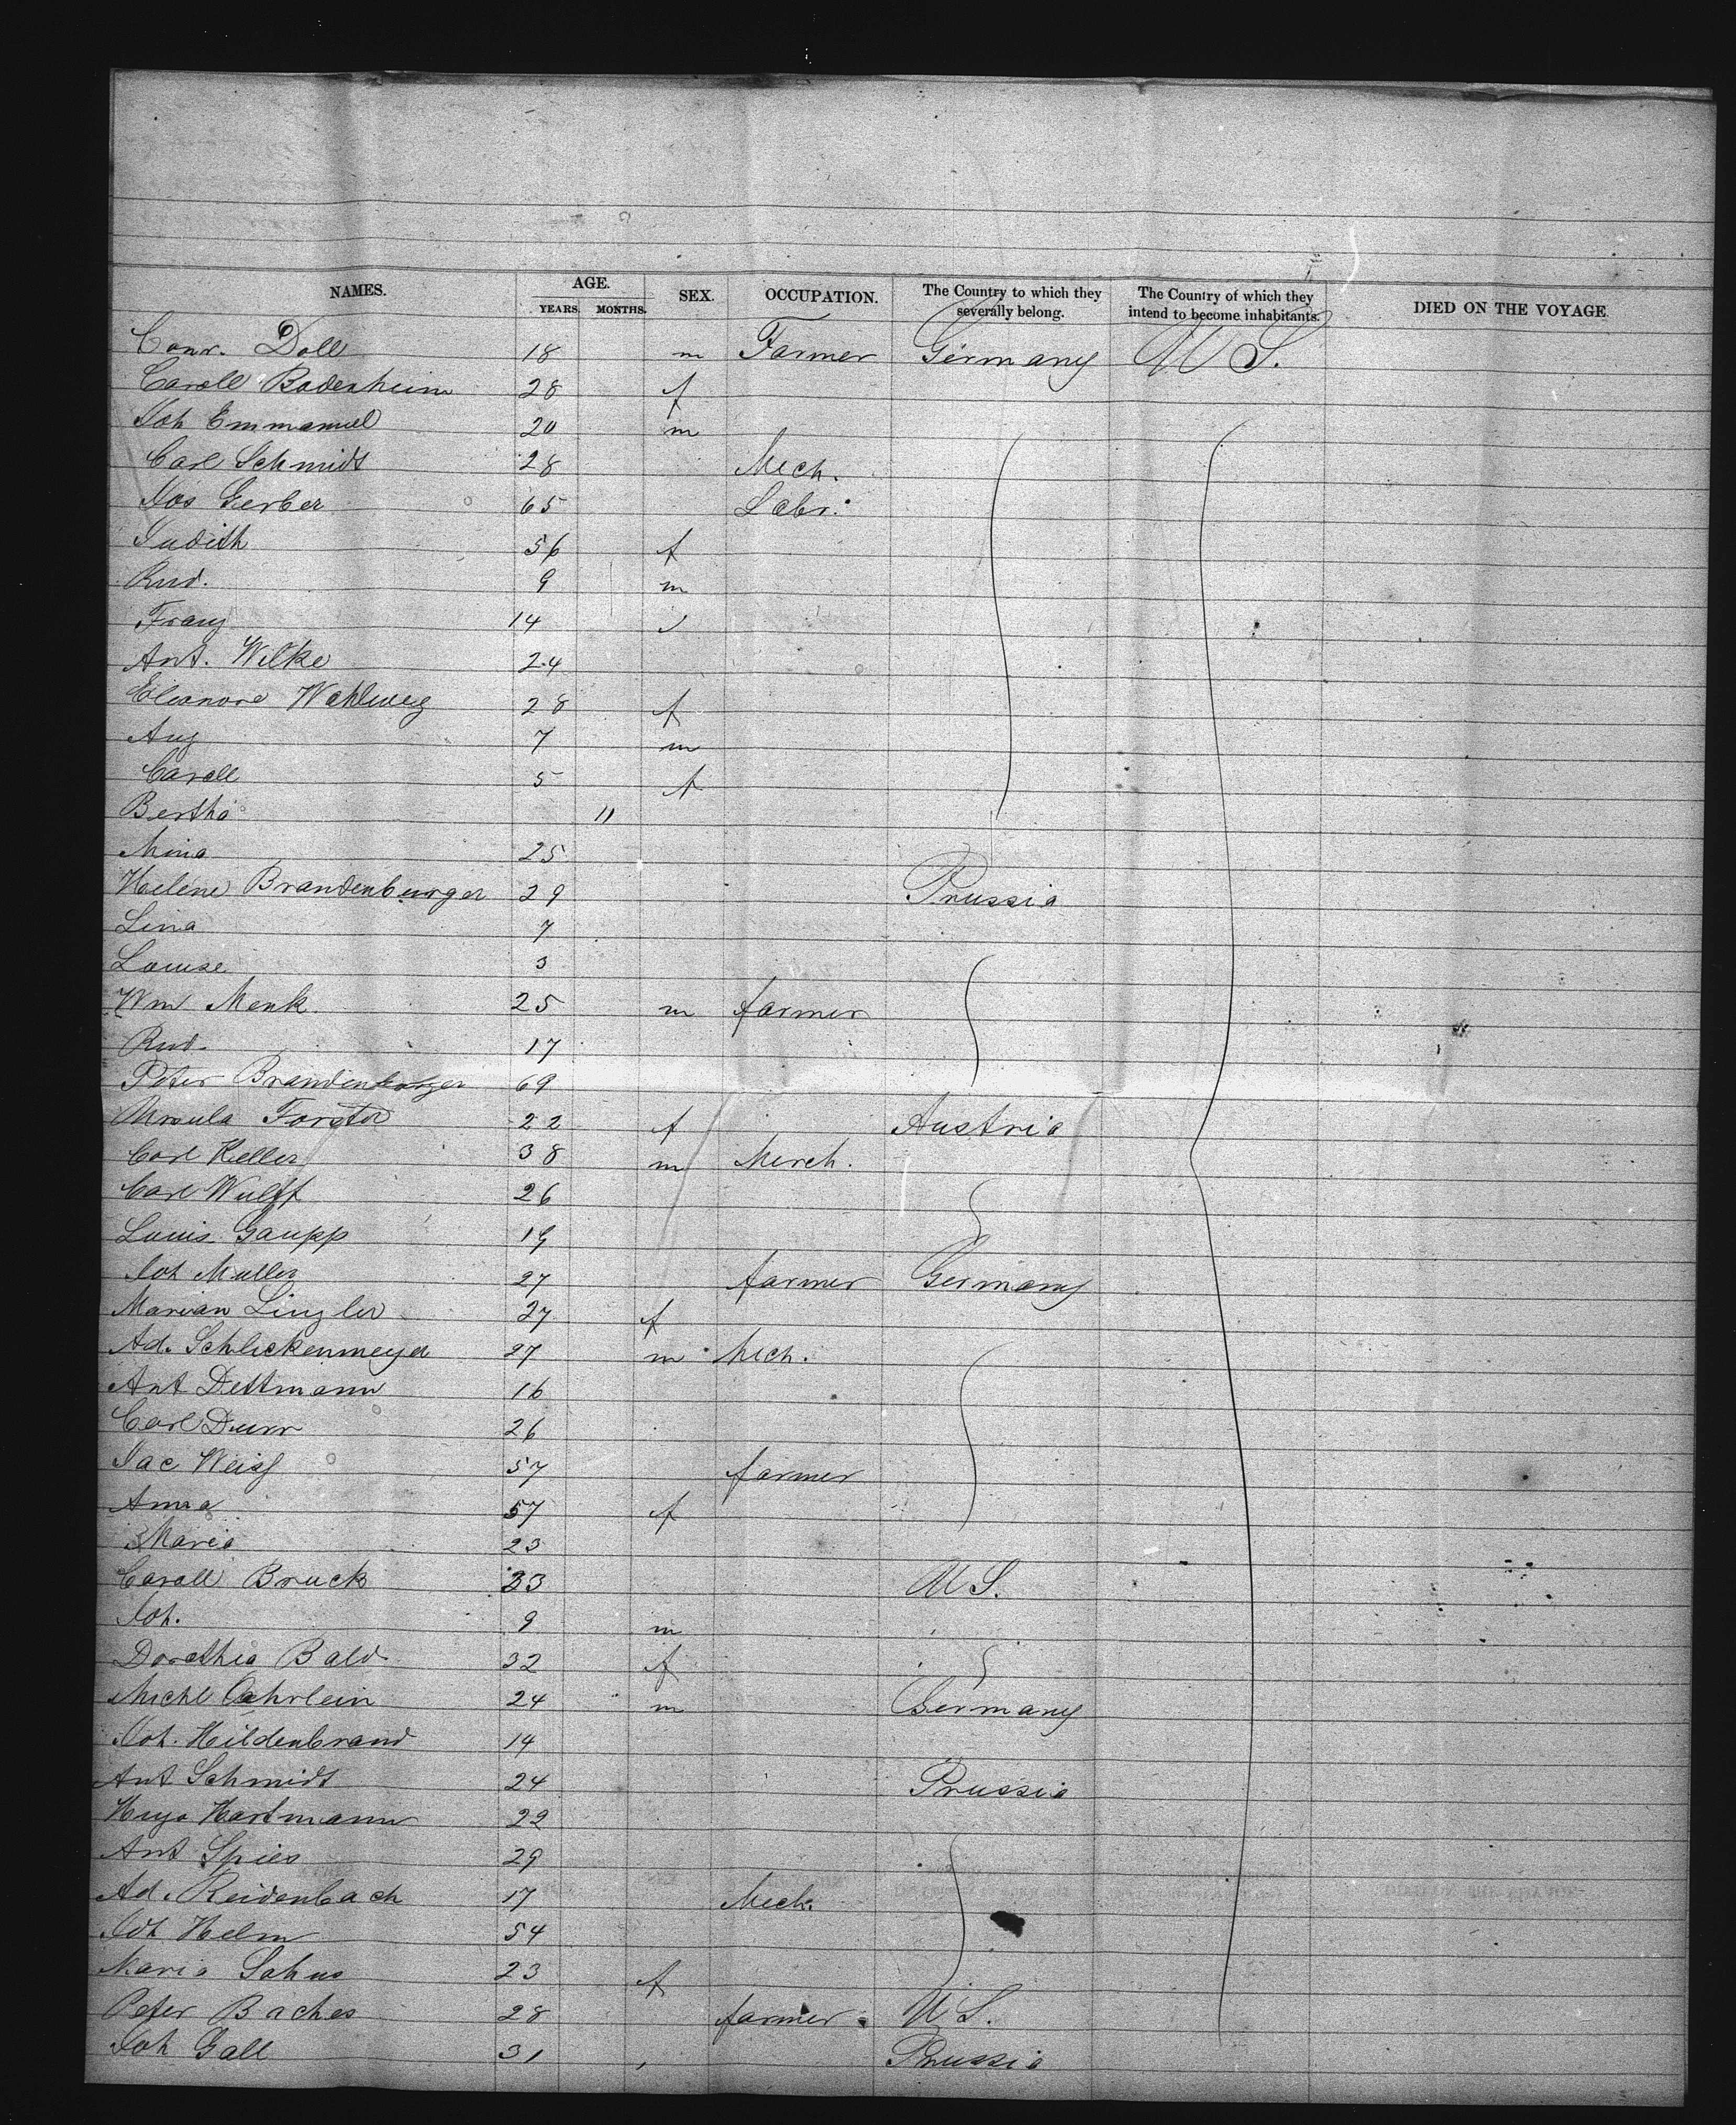 NAMES. AGE. SEX. OCCUPATION. The Country to which they severally belong. The Country of which they intend to become inhabitants. DIED ON THE VOYAGE.
YEARS. MONTHS.
Conr. Doll 18 m Farmer Germany U S.
Caroll Bodenheim 28 f
Joh Emmanuel 20 m
Carl Schmidt 28 Mech.
Jos Gerber 65 Labr.
Judith 56 f
Rud. 9 m
Franz 14
Ant. Wilke 24
Eleanore Wahlweg 28 f
Aug 7 m
Caroll 5 f
Bertha 11
Mina 25
Helene Brandenburger 29 Prussia
Lina 7
Louise 3
Wm Menk. 25 m farmer
Rud. 17
Peter Brandenburger 69
Ursula Forster 22 f Austria
Carl Keller 38 m Merch.
Carl Wulff 26
Louis Gaupp 19
Joh Muller 27 farmer Germany
Marian Lingler 27 f
Ad. Schlickenmeyer 27 m Mech.
Ant Dettmann 16
Carl Durr 26
Jac Weiss 57 farmer
Anna 57 f
Maria 23
Caroll Bruck 33 U S.
Joh. 9 m
Dorothea Bald 32 f
Michl Oehrlein 24 m Germany
Joh. Hildenbrand 14
Ant Schmidt 24 Prussia
Hugo Hartmann 22
Ant Spies 29
Ad. Reidenbach 17 Mech.
Joh Helm 54
Maria Sahus 23 f
Peter Baches 28 farmer U S.
Joh Gall 31 Prussia